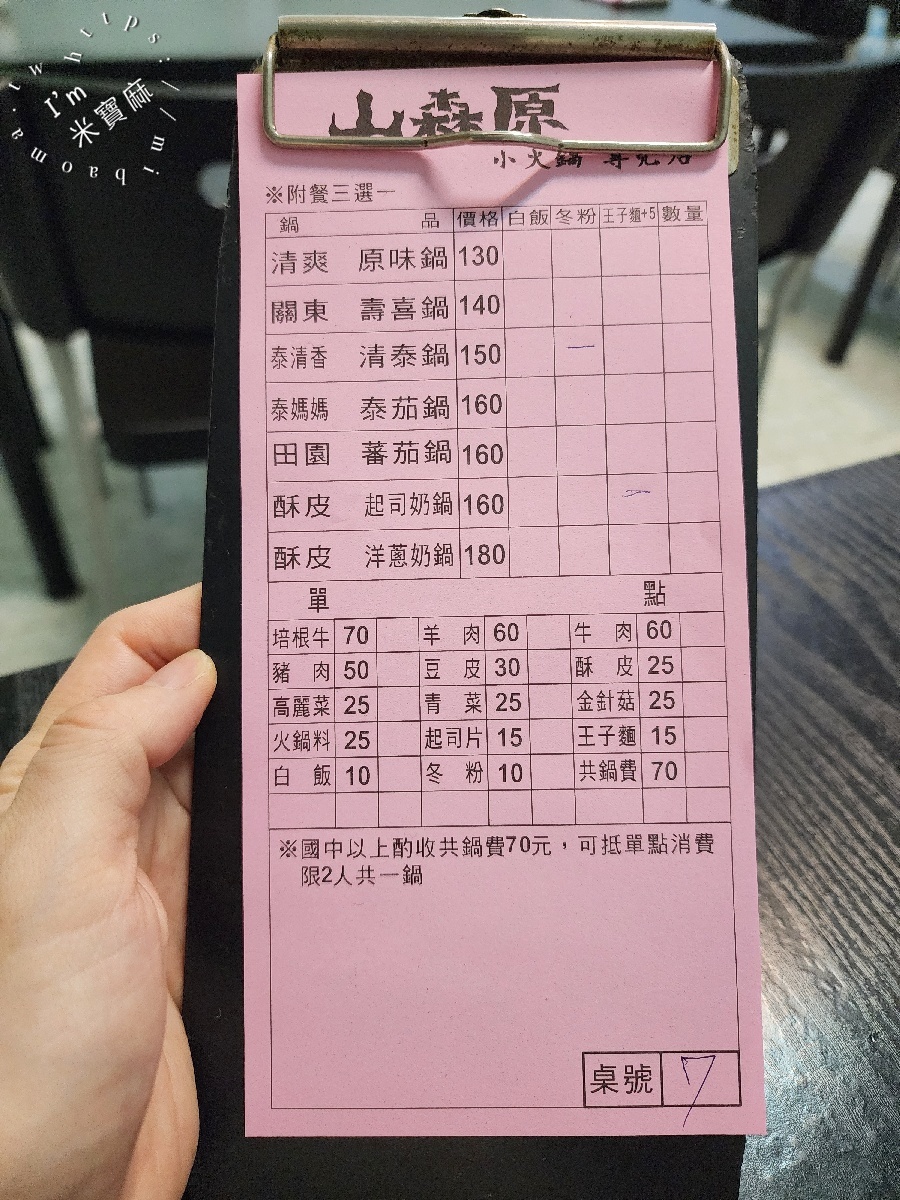 https://mibaoma.tw
I'm
米寶麻
山森原
小火鍋 專賣店
※附餐三選一
鍋 品 價格 白飯 冬粉 王子麵+5 數量
清爽 原味鍋 130
關東 壽喜鍋 140
泰清香 清泰鍋 150 一
泰媽媽 泰茄鍋 160
田園 蕃茄鍋 160
酥皮 起司奶鍋 160 一
酥皮 洋蔥奶鍋 180
單 點
培根牛 70 羊肉 60 牛肉 60
豬肉 50 豆皮 30 酥皮 25
高麗菜 25 青菜 25 金針菇 25
火鍋料 25 起司片 15 王子麵 15
白飯 10 冬粉 10 共鍋費 70
※國中以上酌收共鍋費70元，可抵單點消費
限2人共一鍋
桌號 7